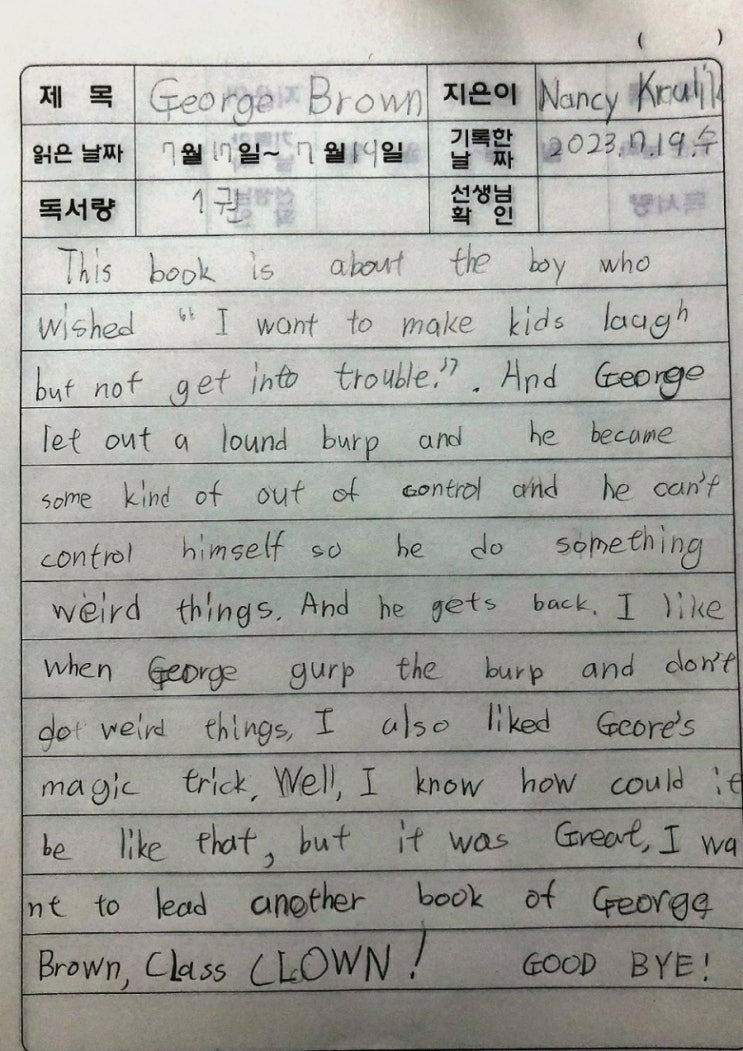 ( )
제 목 George Brown 지은이 Nancy Krulik
읽은 날짜 7월 17일~ 7월 19일 기록한 날 짜 2023.7.19.수
독서량 1권 선생님 확 인
This book is about the boy who
wished “ I want to make kids laugh
but not get into trouble.” . And George
let out a lound burp and he became
some kind of out of control and he can't
control himself so he do something
weird things. And he gets back. I like
when George gurp the burp and don't
dot weird things, I also liked Geore's
magic trick, Well, I know how could it
be like that, but it was Great, I wa
nt to lead another book of George
Brown, Class CLOWN! GOOD BYE!